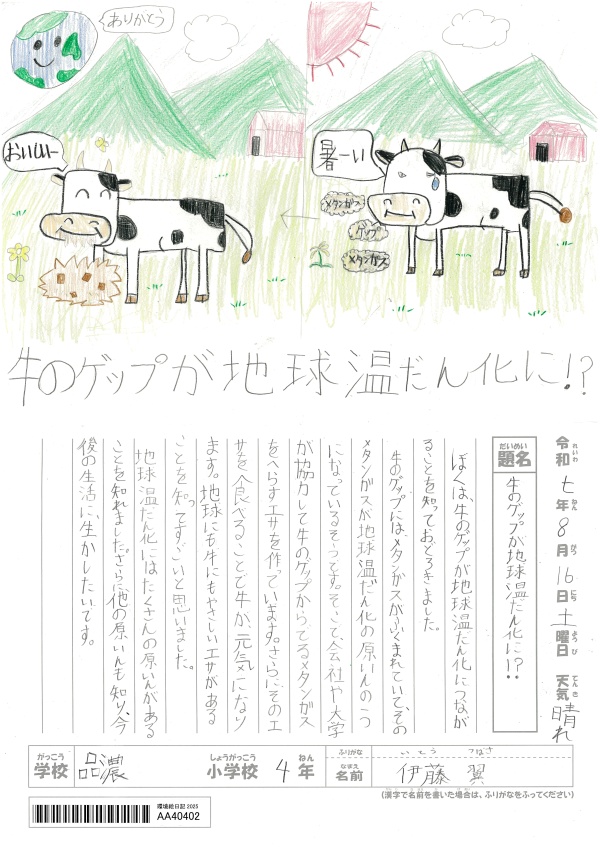 ありがとう
おいしいー
暑ーい
メタンガス
ゲップ
メタンガス
牛のゲップが地球温だん化に!?
令和七年8月16日土曜日 天気晴れ
れいわ ねん がつ にち ようび てんき
だいめい
題名
牛のゲップが地球温だん化に!?
ぼくは、牛のゲップが地球温だん化につなが
ることを知っておどろきました。
牛のゲップには、メタンガスがふくまれていて、その
メタンガスが地球温だん化の原いんの一つ
になっているそうです。そこで、会社や大学
が協力して牛のゲップからでるメタンガス
をへらすエサを作っています。さらにそのエ
サを食べることで牛が、元気になり
ます。地球にも牛にもやさしいエサがある
ことを知ってすごいと思いました。
地球温だん化にはたくさんの原いんがある
ことを知れました。さらに他の原いんも知り、今
後の生活に、生かしたいです。
がっこう しょうがっこう ねん
学校 品濃 小学校 4年
ふりがな いとう つばさ
なまえ
名前 伊藤 翼
(漢字で名前を書いた場合は、ふりがなをふってください)
環境絵日記 2025
AA40402